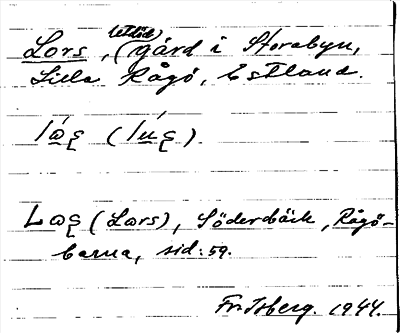 Lors, (utdöd) gård i Storabyn,
Lilla Rågö, Estland.
(Lars), Söderbäck, Rågö-
barna, sid: 59.
Fr. Isberg. 1944.